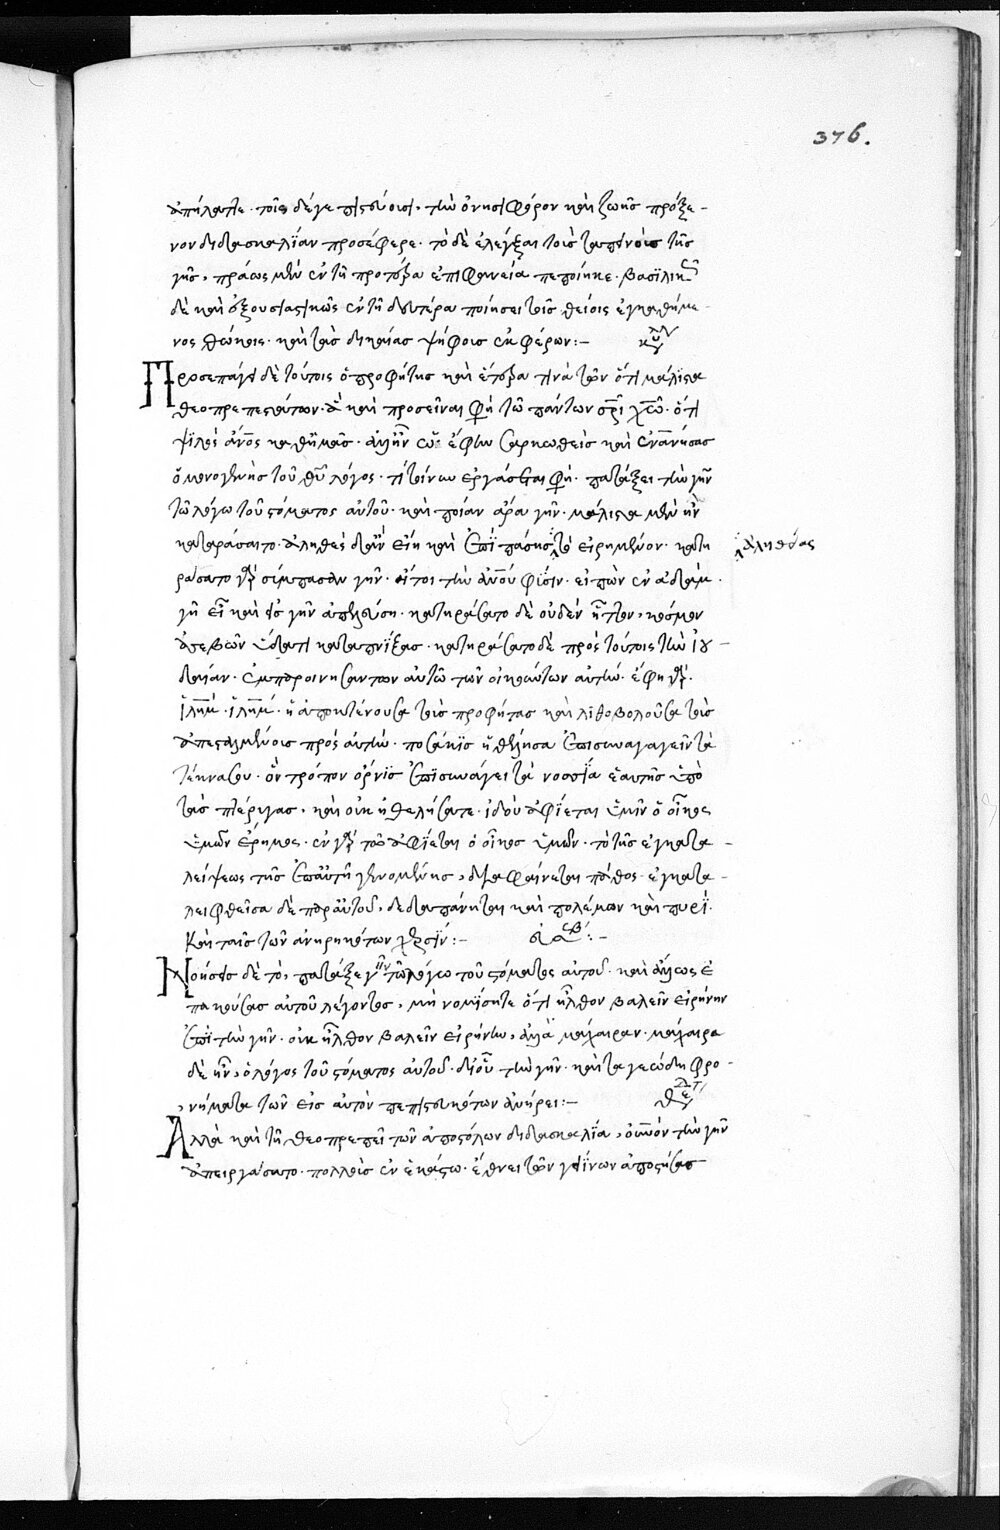 376.
τοῖς δέ γε πιστεύουσι, τὴν ὀνησιφόρον καὶ ζωῆς πρόξε-
νον διδασκαλίαν προσέφερε. τὸ δὲ ἐλέγξαι τοὺς ταπεινοὺς τῆς
γῆς, πράως μὲν ἐν τῇ προτέρα ἐπιφανεία πεποίηκε. βασιλικῶς
δὲ καὶ ἐξουσιαστικῶς ἐν τῇ δευτέρα ποιήσει τοῖς θείοις ἐγκαθήμε-
νος θώκοις. καὶ τὰς δικαίας ψήφους ἐκφέρων:- κυ
Προσεπάγει δὲ τούτοις ὁ προφήτης καὶ ἕτερα τινὰ τῶν ὅτι μάλιστα
θεοπρεπεστάτων. ἃ καὶ προσεῖναι φησὶ τῷ πάντων σρι χω. ὅτι
ψιλὸς ἄνος καθ ἡμᾶς. ἀλλ ἦν ἐφ ᾧ σαρκωθεὶς καὶ ἐνανήσας
ὁ μονογενὴς τοῦ θυ λόγος. τί τοίνυν ἐργάσεται φησί. πατάξει τὴν γῆν
τῷ λόγω τοῦ στόματος αὐτοῦ. καὶ ποίαν ἄρα γῆν. μάλιστα μὲν ἣν
κατηράσατο. ἀληθὲς δ ἂν εἴη καὶ ἐπὶ πάσης τὸ εἰρημένον. κατη ἀληθείας
ράσατο γὰρ σύμπασαν γῆν. ἤτοι τὴν ἀνου φύσιν. εἰπὼν ἐν ἀδάμ.
γῆ εἶ καὶ εἰς γῆν ἀπελεύση. κατηράσατο δὲ οὐδὲν ἧττον, κόσμον
ἀσεβῶν ὕδατι καταπνίξας. κατηράσατο δὲ πρὸς τούτοις τὴν ἰου-
δαίαν. ἐμπαροινησάντων αὐτῷ τῶν οἰκούντων αὐτήν. ἔφη γάρ.
ἱλημ. ἱλημ. ἡ ἀποκτένουσα τοὺς προφήτας καὶ λιθοβολοῦσα τοὺς
ἀπεσταλμένους πρὸς αὐτήν. ποσάκις ἠθέλησα ἐπισυναγαγεῖν τὰ
τέκνα σου. ὃν τρόπον ὄρνις ἐπισυνάγει τὰ νοσσία ἑαυτῆς ὑπὸ
τὰς πτέρυγας. καὶ οὐκ ἠθελήσατε. ἰδοὺ ἀφίεται ὑμῖν ὁ οἶκος
ὑμῶν ἔρημος. ἐν γὰρ τῷ ἀφίεται ὁ οἶκος ὑμῶν. τὸ τῆς ἐγκατα-
λείψεως τῆς ἐπ αὐτῇ γενομένης, διαφαίνεται πάθος. ἐγκατα-
λειφθεῖσα δὲ παρ αὐτοῦ, δεδαπάνηται καὶ πολέμων καὶ πυρί.
Καὶ ταῖς τῶν ἀνηρηκότων χερσίν:-
Νοήσεις δὲ τὸ, πατάξει γῆν τῷ λόγω τοῦ στόματος αὐτοῦ. καὶ ἄλλως ἐ
πακούσας αὐτοῦ λέγοντος, μὴ νομίσητε ὅτι ἦλθον βαλεῖν εἰρήνην
ἐπὶ τὴν γῆν. οὐκ ἦλθον βαλεῖν εἰρήνην, ἀλλὰ μάχαιραν. μάχαιρα
δὲ ἦν, ὁ λόγος τοῦ στόματος αὐτοῦ. δι οὗ τὴν γῆν. καὶ τὰ γεώδη φρο-
νήματα τῶν εἰς αὐτὸν πεπιστευκότων ἀνήρει:-
Ἀλλὰ καὶ τῇ θεοπρεπεῖ τῶν ἀποστόλων διδασκαλία, τὴν γῆν
ἀπειργάσατο. πολλοὺς ἐν ἑκάστω. ἔθνει τῶν γηίνων ἀποστήσας